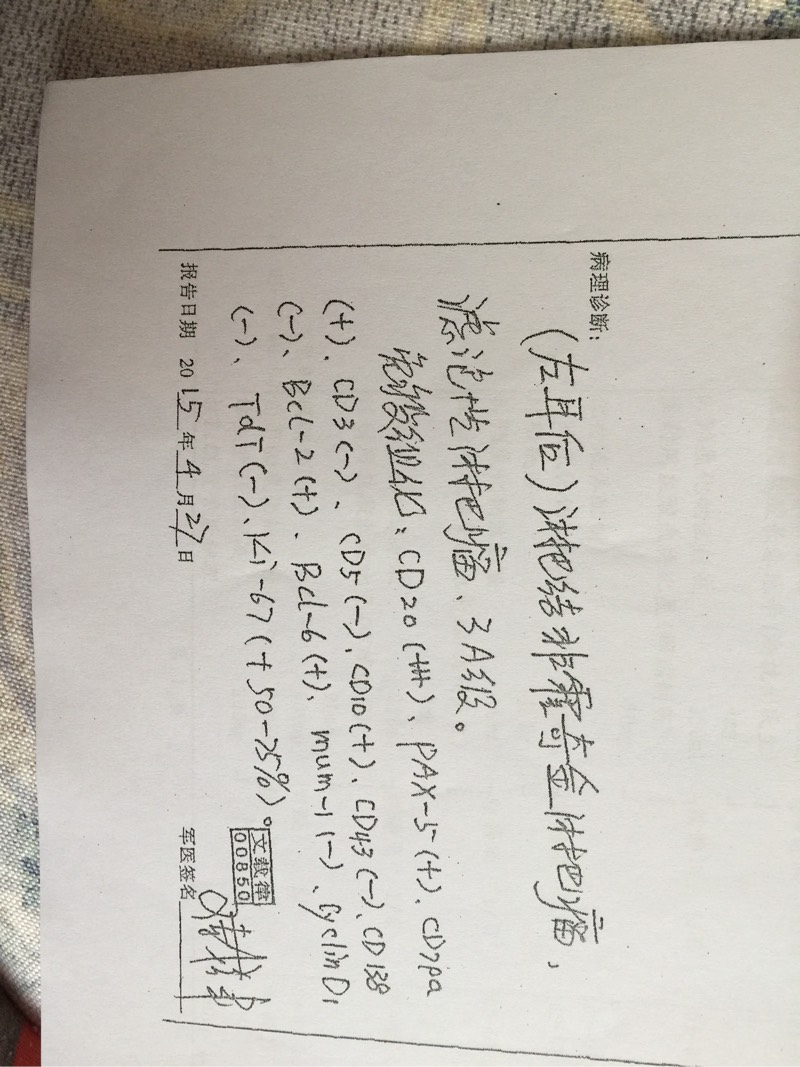 病理诊断:
(左耳后)淋巴结非霍奇金淋巴瘤、
滤泡性淋巴瘤、3A级。
免疫组化:CD20(+++)、PAX-5(+)、CD79a
(+)、CD3(-)、CD5(-)、CD10(+)、CD43(-)、CD138
(-)、Bcl-2(+)、Bcl-6(+)、mum-1(-)、CyclinD1
(-)、TdT(-)、Ki-67(+50-75%)。
报告日期 2015年4月27日
军医签名
00850